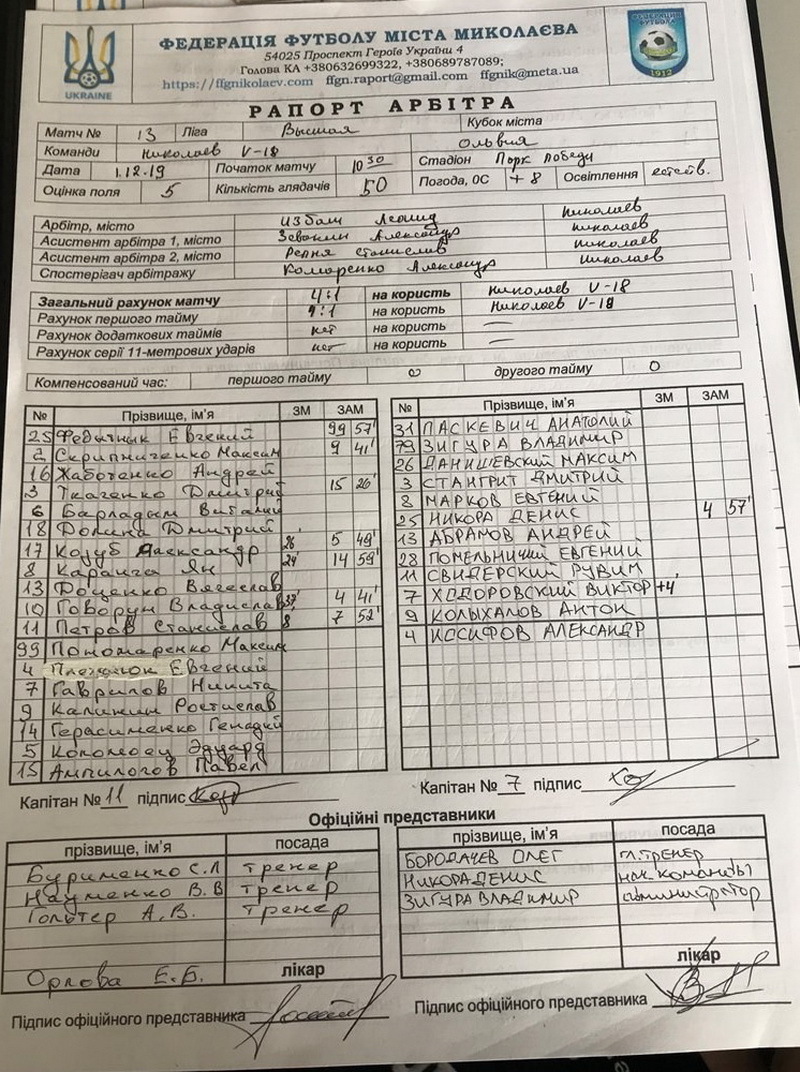 ФЕДЕРАЦІЯ ФУТБОЛУ МІСТА МИКОЛАЄВА
54025 Проспект Героїв України 4
Голова КЛ +380632699322, +380689787089;
https://ffgnikolaev.com ffgn.raport@gmail.com ffgnik@meta.ua
UKRAINE
ФЕДЕРАЦІЯ ФУТБОЛУ
1912
РАПОРТ АРБІТРА
Матч № 13 Ліга Высшая Кубок міста
Команди Николаев V-18 Ольвия
Дата 1.12.19 Початок матчу 10 30 Стадіон Парк победи
Оцінка поля 5 Кількість глядачів 50 Погода, 0С +8 Освітлення естеств.
Арбітр, місто Избаш Леонид Николаев
Асистент арбітра 1, місто Александр Николаев
Асистент арбітра 2, місто Репня Станислав Николаев
Спостерігач арбітражу Комаренко Александр Николаев
Загальний рахунок матчу 4:1 на користь Николаев V-18
Рахунок першого тайму :1 на користь Николаев V-18
Рахунок додаткових таймів нет на користь —
Рахунок серії 11-метрових ударів нет на користь —
Компенсований час: першого тайму 0 другого тайму 0
№ Прізвище, ім'я ЗМ ЗАМ
25 Евгений 99 57'
2 Скрипниченко Максим 9 41'
16 Жаботенко Андрей
3 Ткаченко Дмитрий 15 26'
6 Барладым Виталий
18 Долина Дмитрий
17 Козуб Александр 26 5 49'
8 Каранга Ян 29' 14 59'
13 Доценко Вячеслав
10 Говорун Владислав 37' 4 41'
11 Петров Станислав 8 7 52'
99 Пономаренко Максим
4 Евгений
7 Гаврилов Никита
9 Калинин Ростислав
14 Герасименко Генадий
5 Коломоец Эдуард
15 Ампилогов Павел
№ Прізвище, ім'я ЗМ ЗАМ
31 ПАСКЕВИЧ АНАТОЛИЙ
79 ЗИГУРА ВЛАДИМИР
26 ДАНИШЕВСКИЙ МАКСИМ
3 СТАНГРИТ ДМИТРИЙ
8 МАРКОВ ЕВГЕНИЙ
25 НИКОРА ДЕНИС 4 57'
13 АБРАМОВ АНДРЕЙ
28 ПОМЕЛЬНИЧИЙ ЕВГЕНИЙ
11 СВИДЕРСКИЙ РУВИМ
7 ХОДОРОВСКИЙ ВИКТОР +4'
9 КОЛЫХАЛОВ АНТОН
4 ИОСИФОВ АЛЕКСАНДР
Капітан № 11 підпис
Капітан № 7 підпис
Офіційні представники
прізвище, ім'я посада
Бурименко С.Л тренер
Науменко В.В тренер
Гольтер А.В. тренер
Орлова Е.Б. лікар
Підпис офіційного представника
прізвище, ім'я посада
БОРОДАЧЕВ ОЛЕГ гл.ТРЕНЕР
НИКОРА ДЕНИС нач. команды
ЗИГУРА ВЛАДИМИР администратор
лікар
Підпис офіційного представника